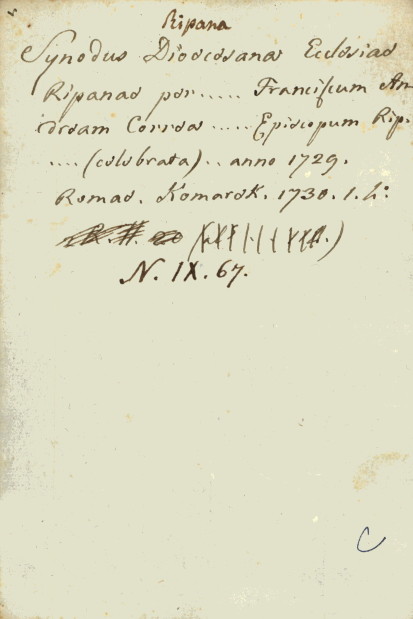 Ripana
Synodus Dioecesana Ecclesiae
Ripanae per..... Franciscum An-
dream Correa ..... Episcopum Rip.
.... (celebrata).. anno 1729.
Romae. Komarek. 1730. 1. 4°
N. IX. 67.
C